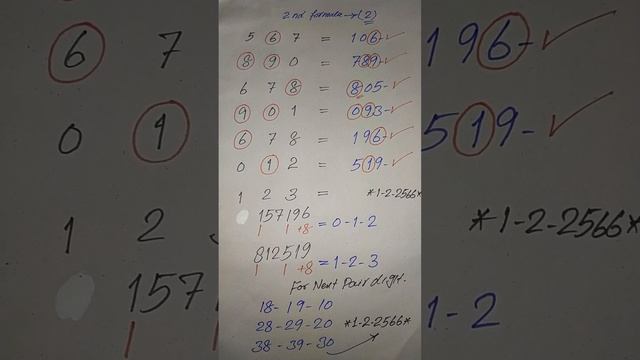 2nd formula → (2)
5 6 7 = 106-✓
8 9 0 = 789-✓
6 7 8 = 805-✓
9 0 1 = 093-✓
6 7 8 = 196-✓
0 1 2 = 519-✓
1 2 3 = *1-2-2566*
157196
1 1 +8 = 0-1-2
812519
1 1 +8 = 1-2-3
For Next Pair digit.
18-19-10
28-29-20 *1-2-2566*
38-39-30
6 7
0 1
1 2
157
1 1
196-✓
519-✓
*1-2-2566*
1-2